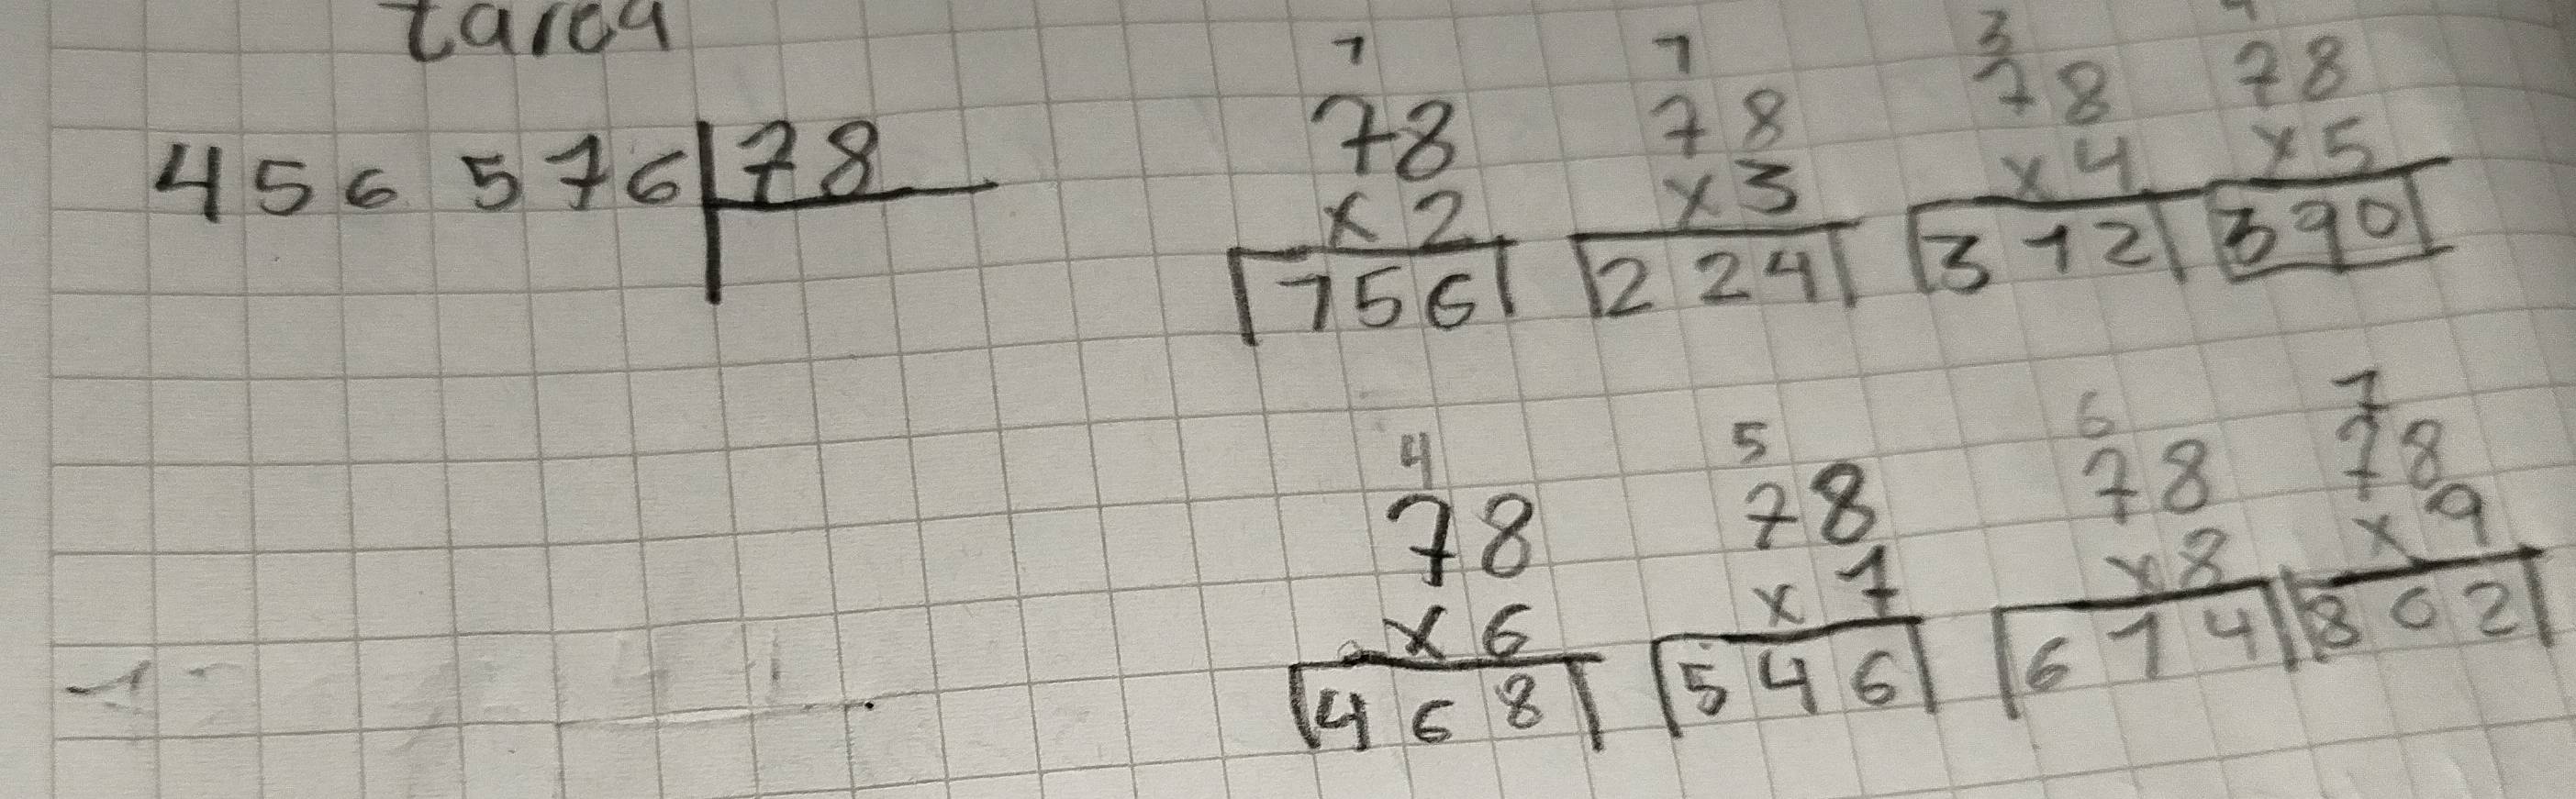 tarea
456 576 78
1
78
x 2
156
1
78
x 3
224
3
78
x 4
312
78
x 5
390
4
78
x 6
468
5
78
x 7
546
6
78
x 8
614
7
78
x 9
802